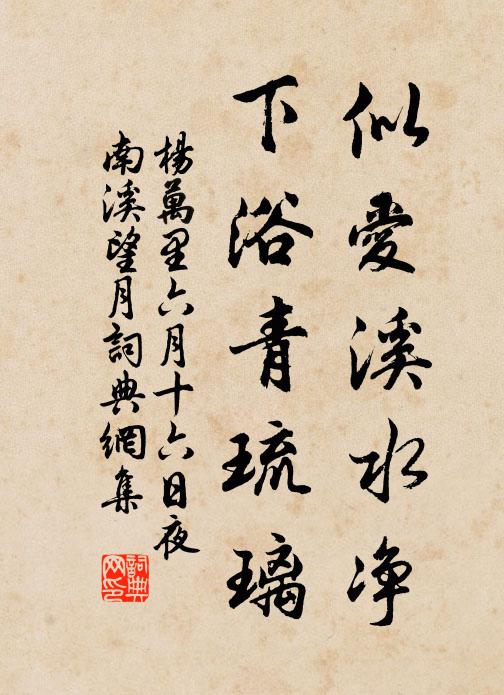 似愛溪水净
下浴青琉璃
楊萬里六月十六日夜
南溪望月詞典網集
詞典
网印